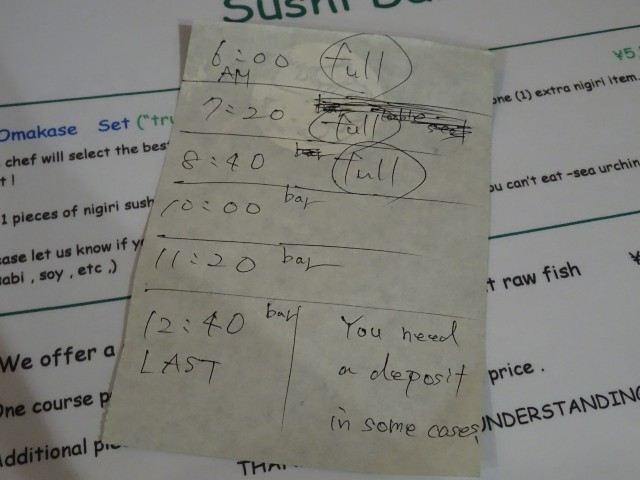 Sushi
6:00 full
AM
7:20 full
8:40 bar full
10:00 bar
11:20 bar
12:40 bar
LAST
You need
a deposit
in some cases
¥5
Omakase Set ("tru
chef will select the best
t !
1 pieces of nigiri sush
ase let us know if y
abi , soy , etc ,)
We offer a
One course p
Additional pi
one (1) extra nigiri item.
ou can't eat -sea urchin
t raw fish ¥
price .
UNDERSTANDING
THA